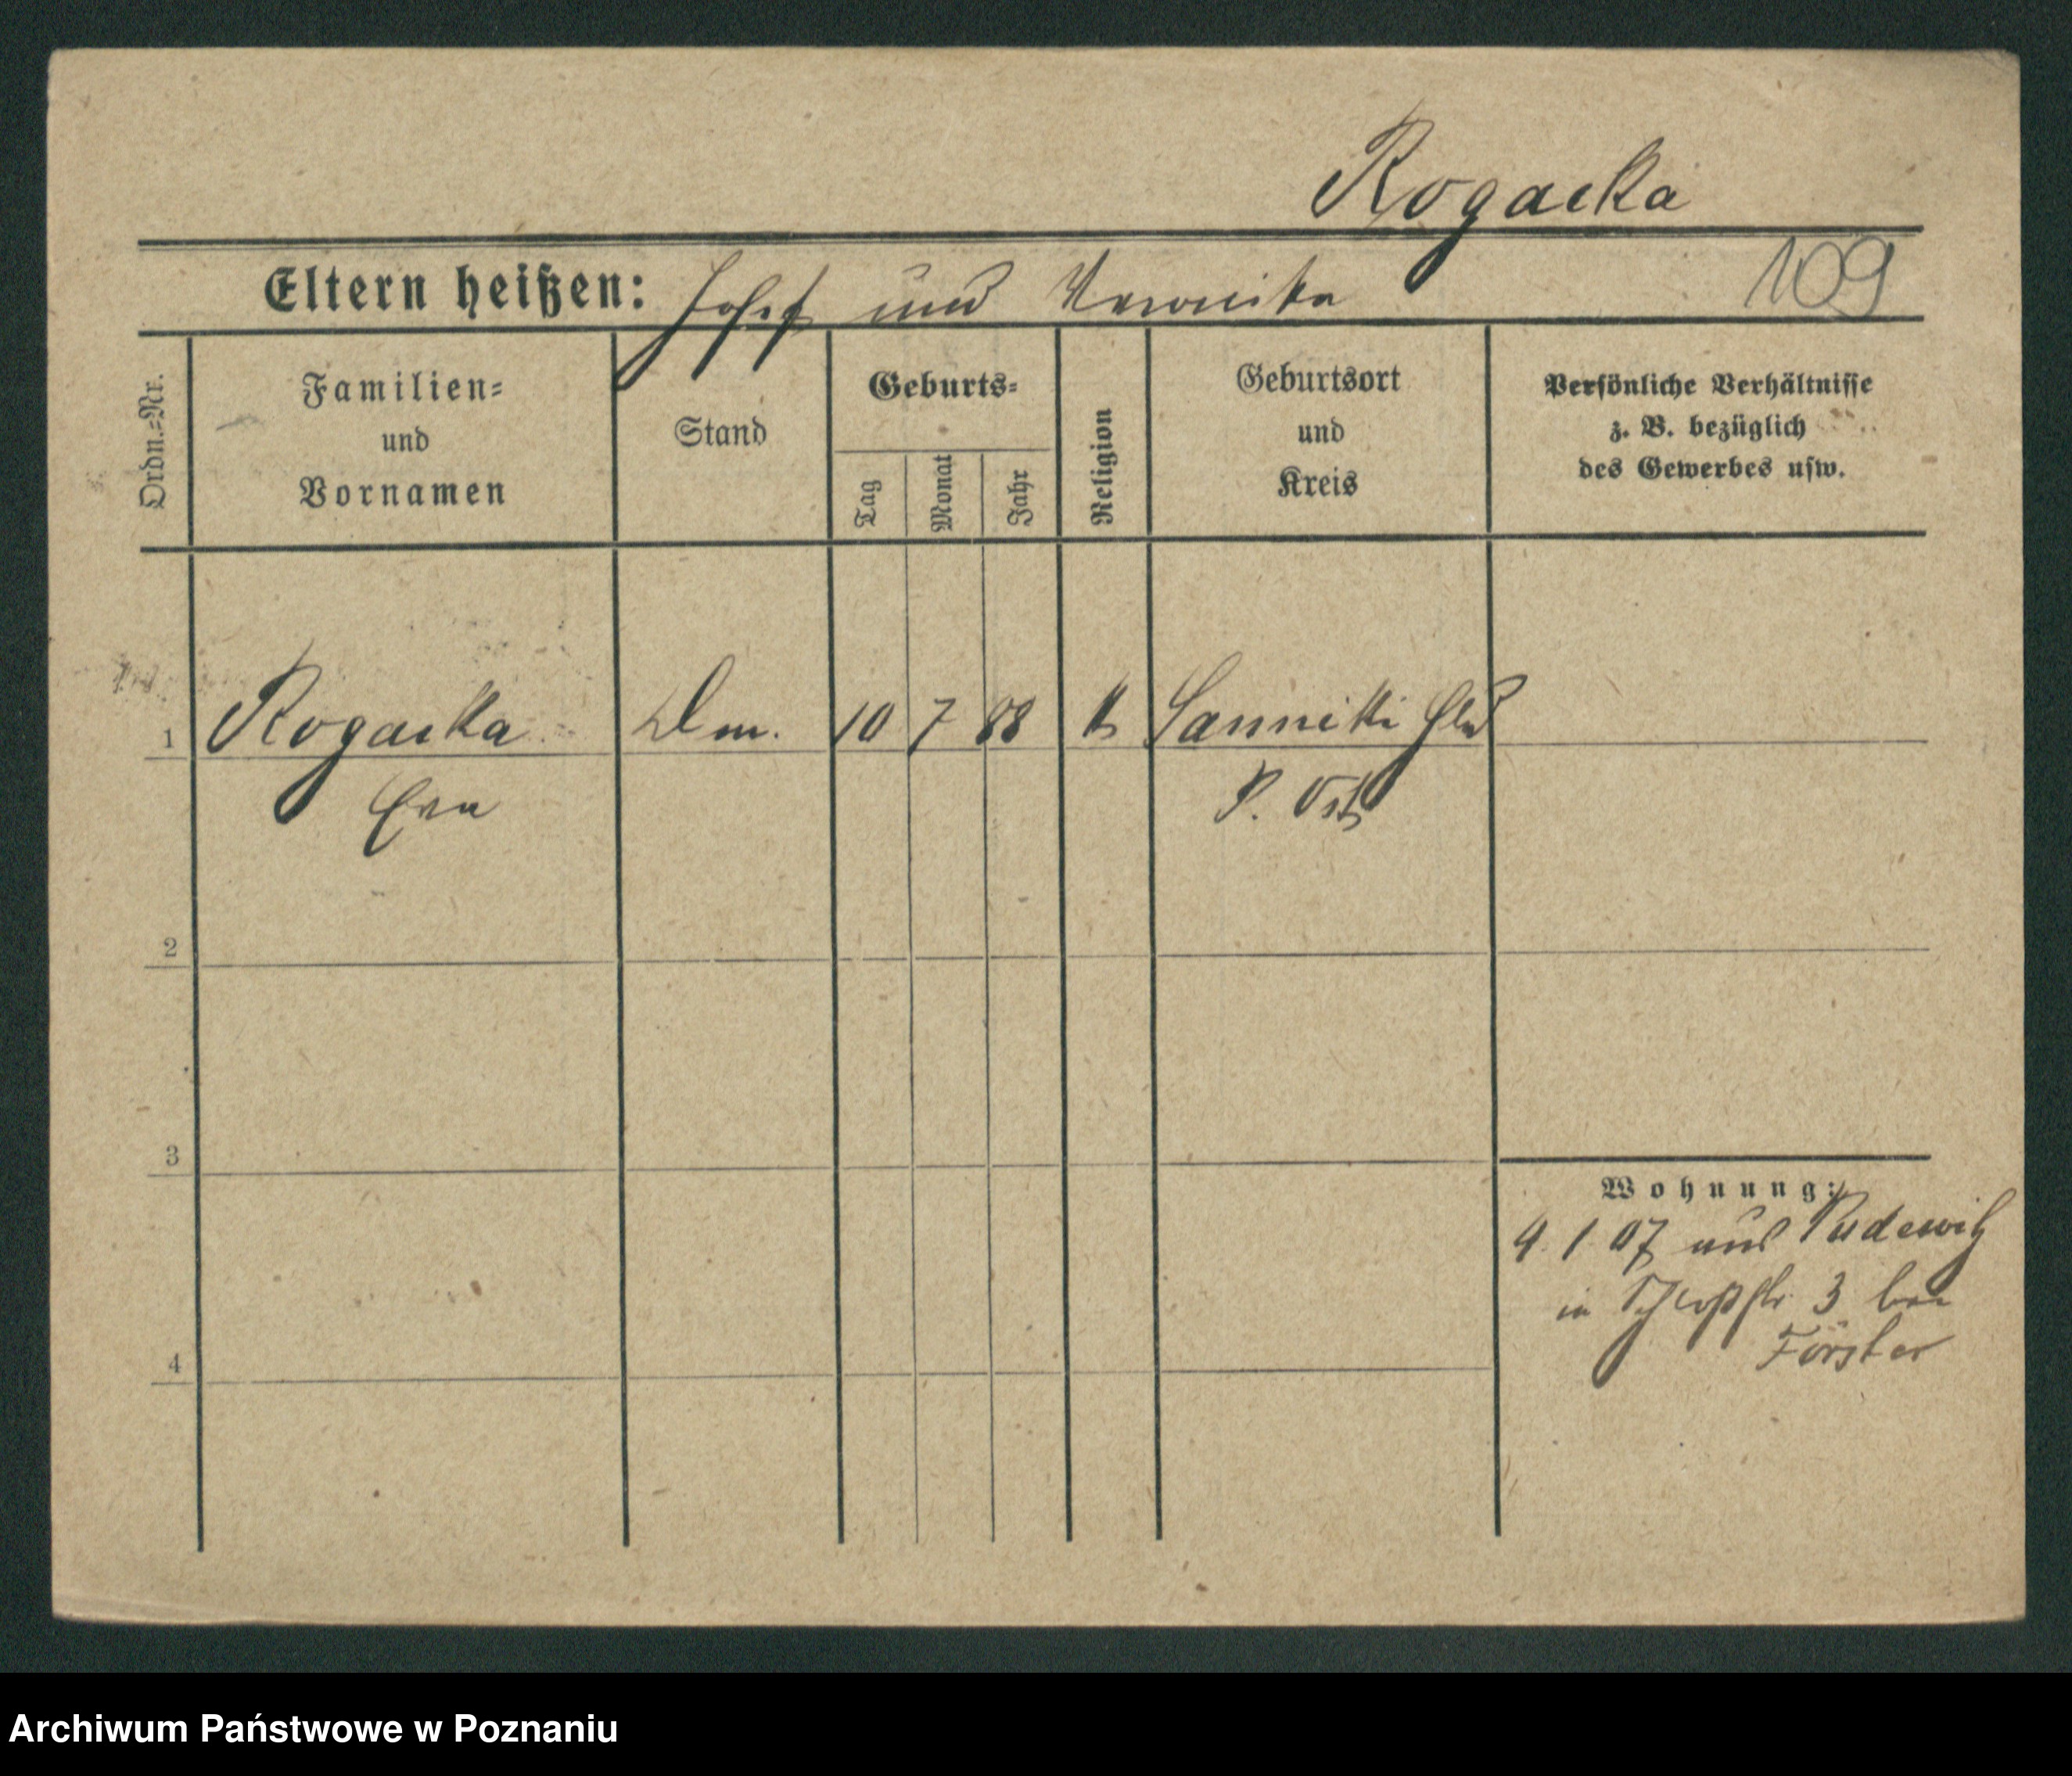 Rogacka
109
Eltern heißen: Josef und Veronika
Ordn.=Nr.
Familien=
und
Vornamen
Stand
Geburts=
Tag
Monat
Jahr
Religion
Geburtsort
und
Kreis
Persönliche Verhältnisse
z. B. bezüglich
des Gewerbes usw.
1 Rogacka Dm. 10 7 88 k Sanniki
Eva P. Ost
2
3
4
Wohnung:
9. 1 07 aus Pudewitz
in Schloßstr. 3 bei
Förster
Archiwum Państwowe w Poznaniu